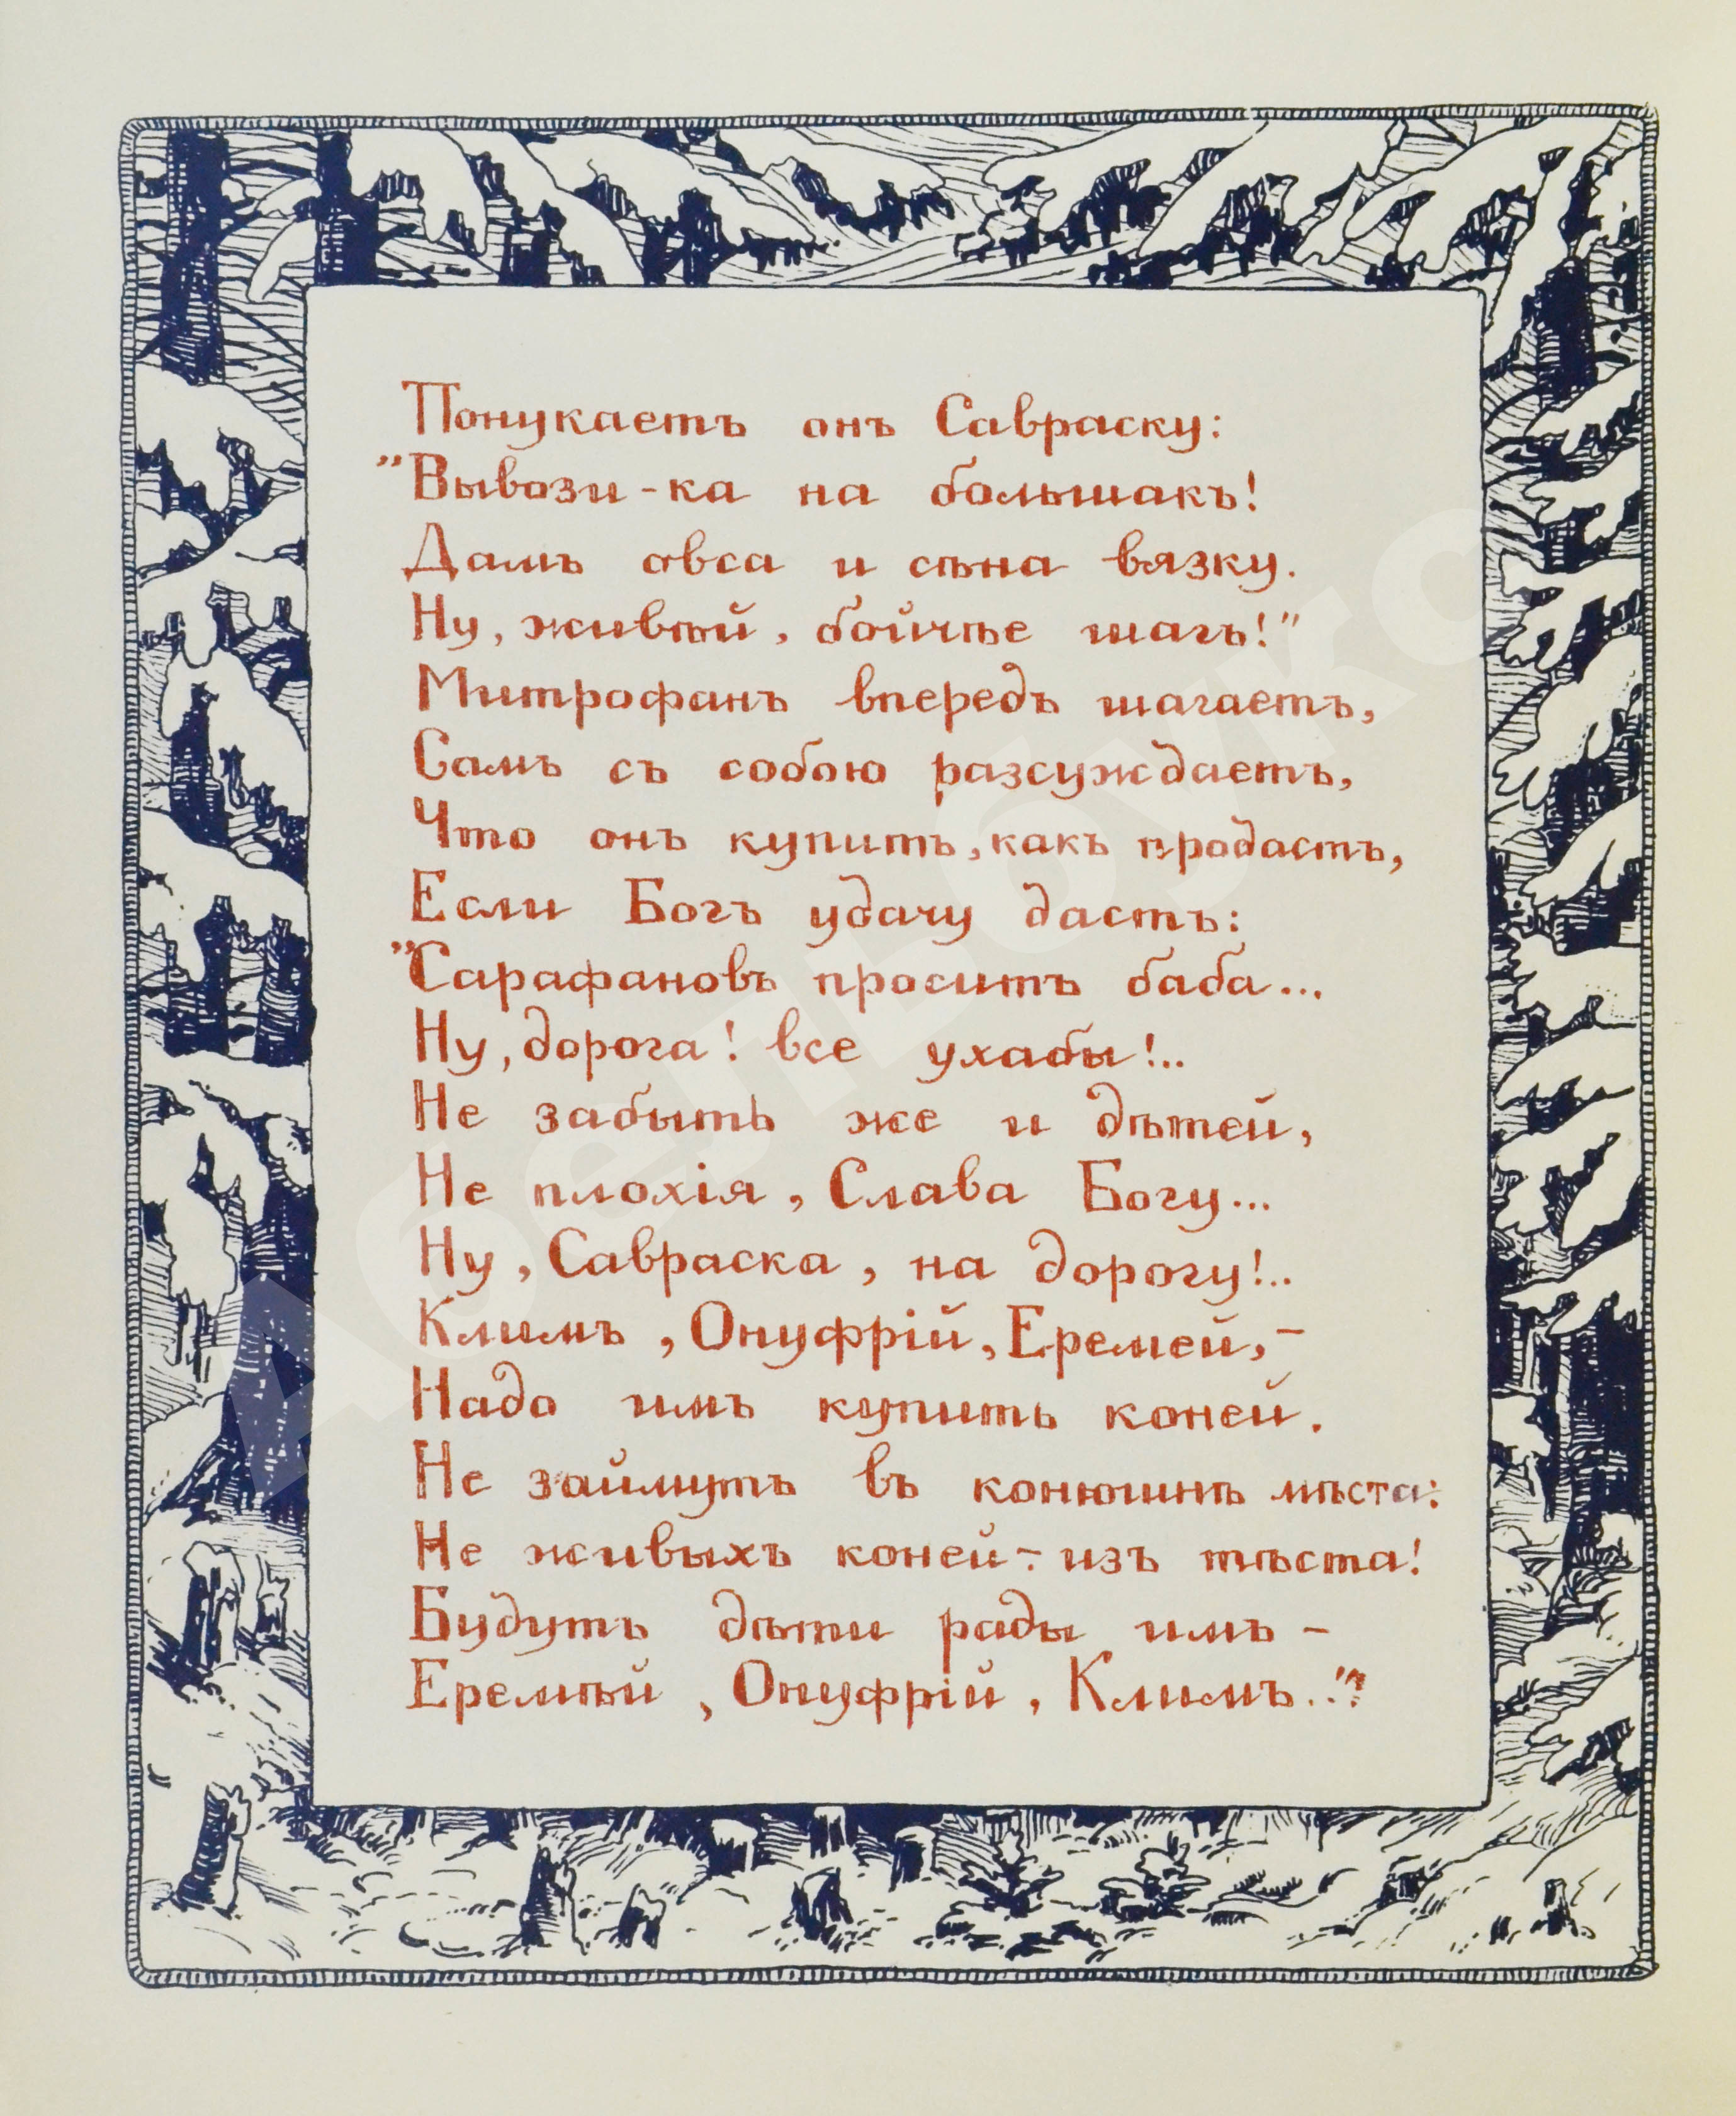 Понукаетъ онъ Савраску:
"Вывози-ка на большакъ!
Дамъ овса и сѣна вязку.
Ну, живѣй, бойчѣе шагъ!"
Митрофанъ впередъ шагаетъ,
Самъ съ собою разсуждаетъ,
Что онъ купитъ, какъ продастъ,
Если Богъ удачу дастъ:
"Сарафановъ проситъ баба...
Ну, дорога! все ухабы!..
Не забыть же и дѣтей,
Не плохія, Слава Богу...
Ну, Савраска, на дорогу!..
Климъ, Онуфрій, Еремей,–
Надо имъ купить коней.
Не займутъ въ конюшнѣ мѣста:
Не живыхъ коней – изъ тѣста!
Будутъ дѣти рады имъ –
Еремѣй, Онуфрій, Климъ.."?
Абельбукс